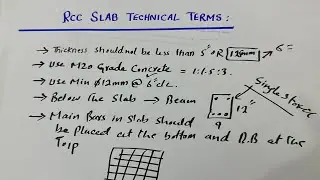 RCC SLAB TECHNICAL TERMS:
→ Thickness should not be less than 5" OR 125mm 6=
→ Use M20 Grade Concrete = 1:1.5:3.
→ Use Min ϕ12mm @ 6" c/c.
→ Below The Slab → Beam
12"
9
Single storey
→ Main Bars in Slab should
be placed at the bottom and D.B at The
Top